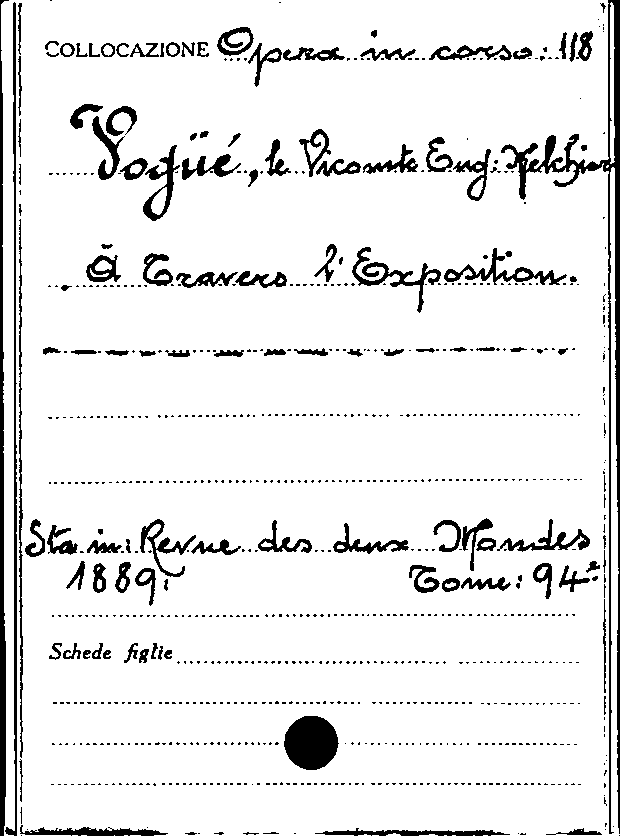 COLLOCAZIONE Opera in corso: 118
Vogüé, le Vicomte Eug: Melchior
À Travers l'Exposition.
Sta in: Revue des deux Mondes
1889: Tome: 94º
Schede figlie